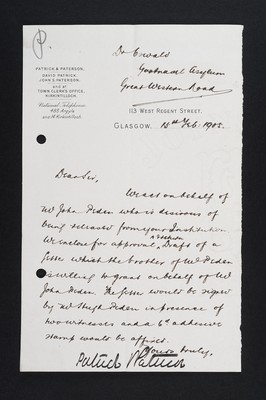 P.
Dr Oswald
Goodnavel Asylum
Great Western Road
PATRICK & PATERSON,
DAVID PATRICK.
JOHN S. PATERSON.
and at
TOWN CLERK'S OFFICE,
KIRKINTILLOCH.
National Telephones
113 WEST REGENT STREET.
GLASGOW, 15th Feb. 1905.
Dear Sir,
We act on behalf of
Mr John Peden who is desirous of
being released from your Institution
We enclose for approval, Draft of a
letter which the brother of Mr Peden
is willing to grant on behalf of Mr
John Peden. The letter would be signed
by Mr Hugh Peden in presence of
two witnesses and a 6d adhesive
stamp would be affixed.
Yours truly,
Patrick & Paterson